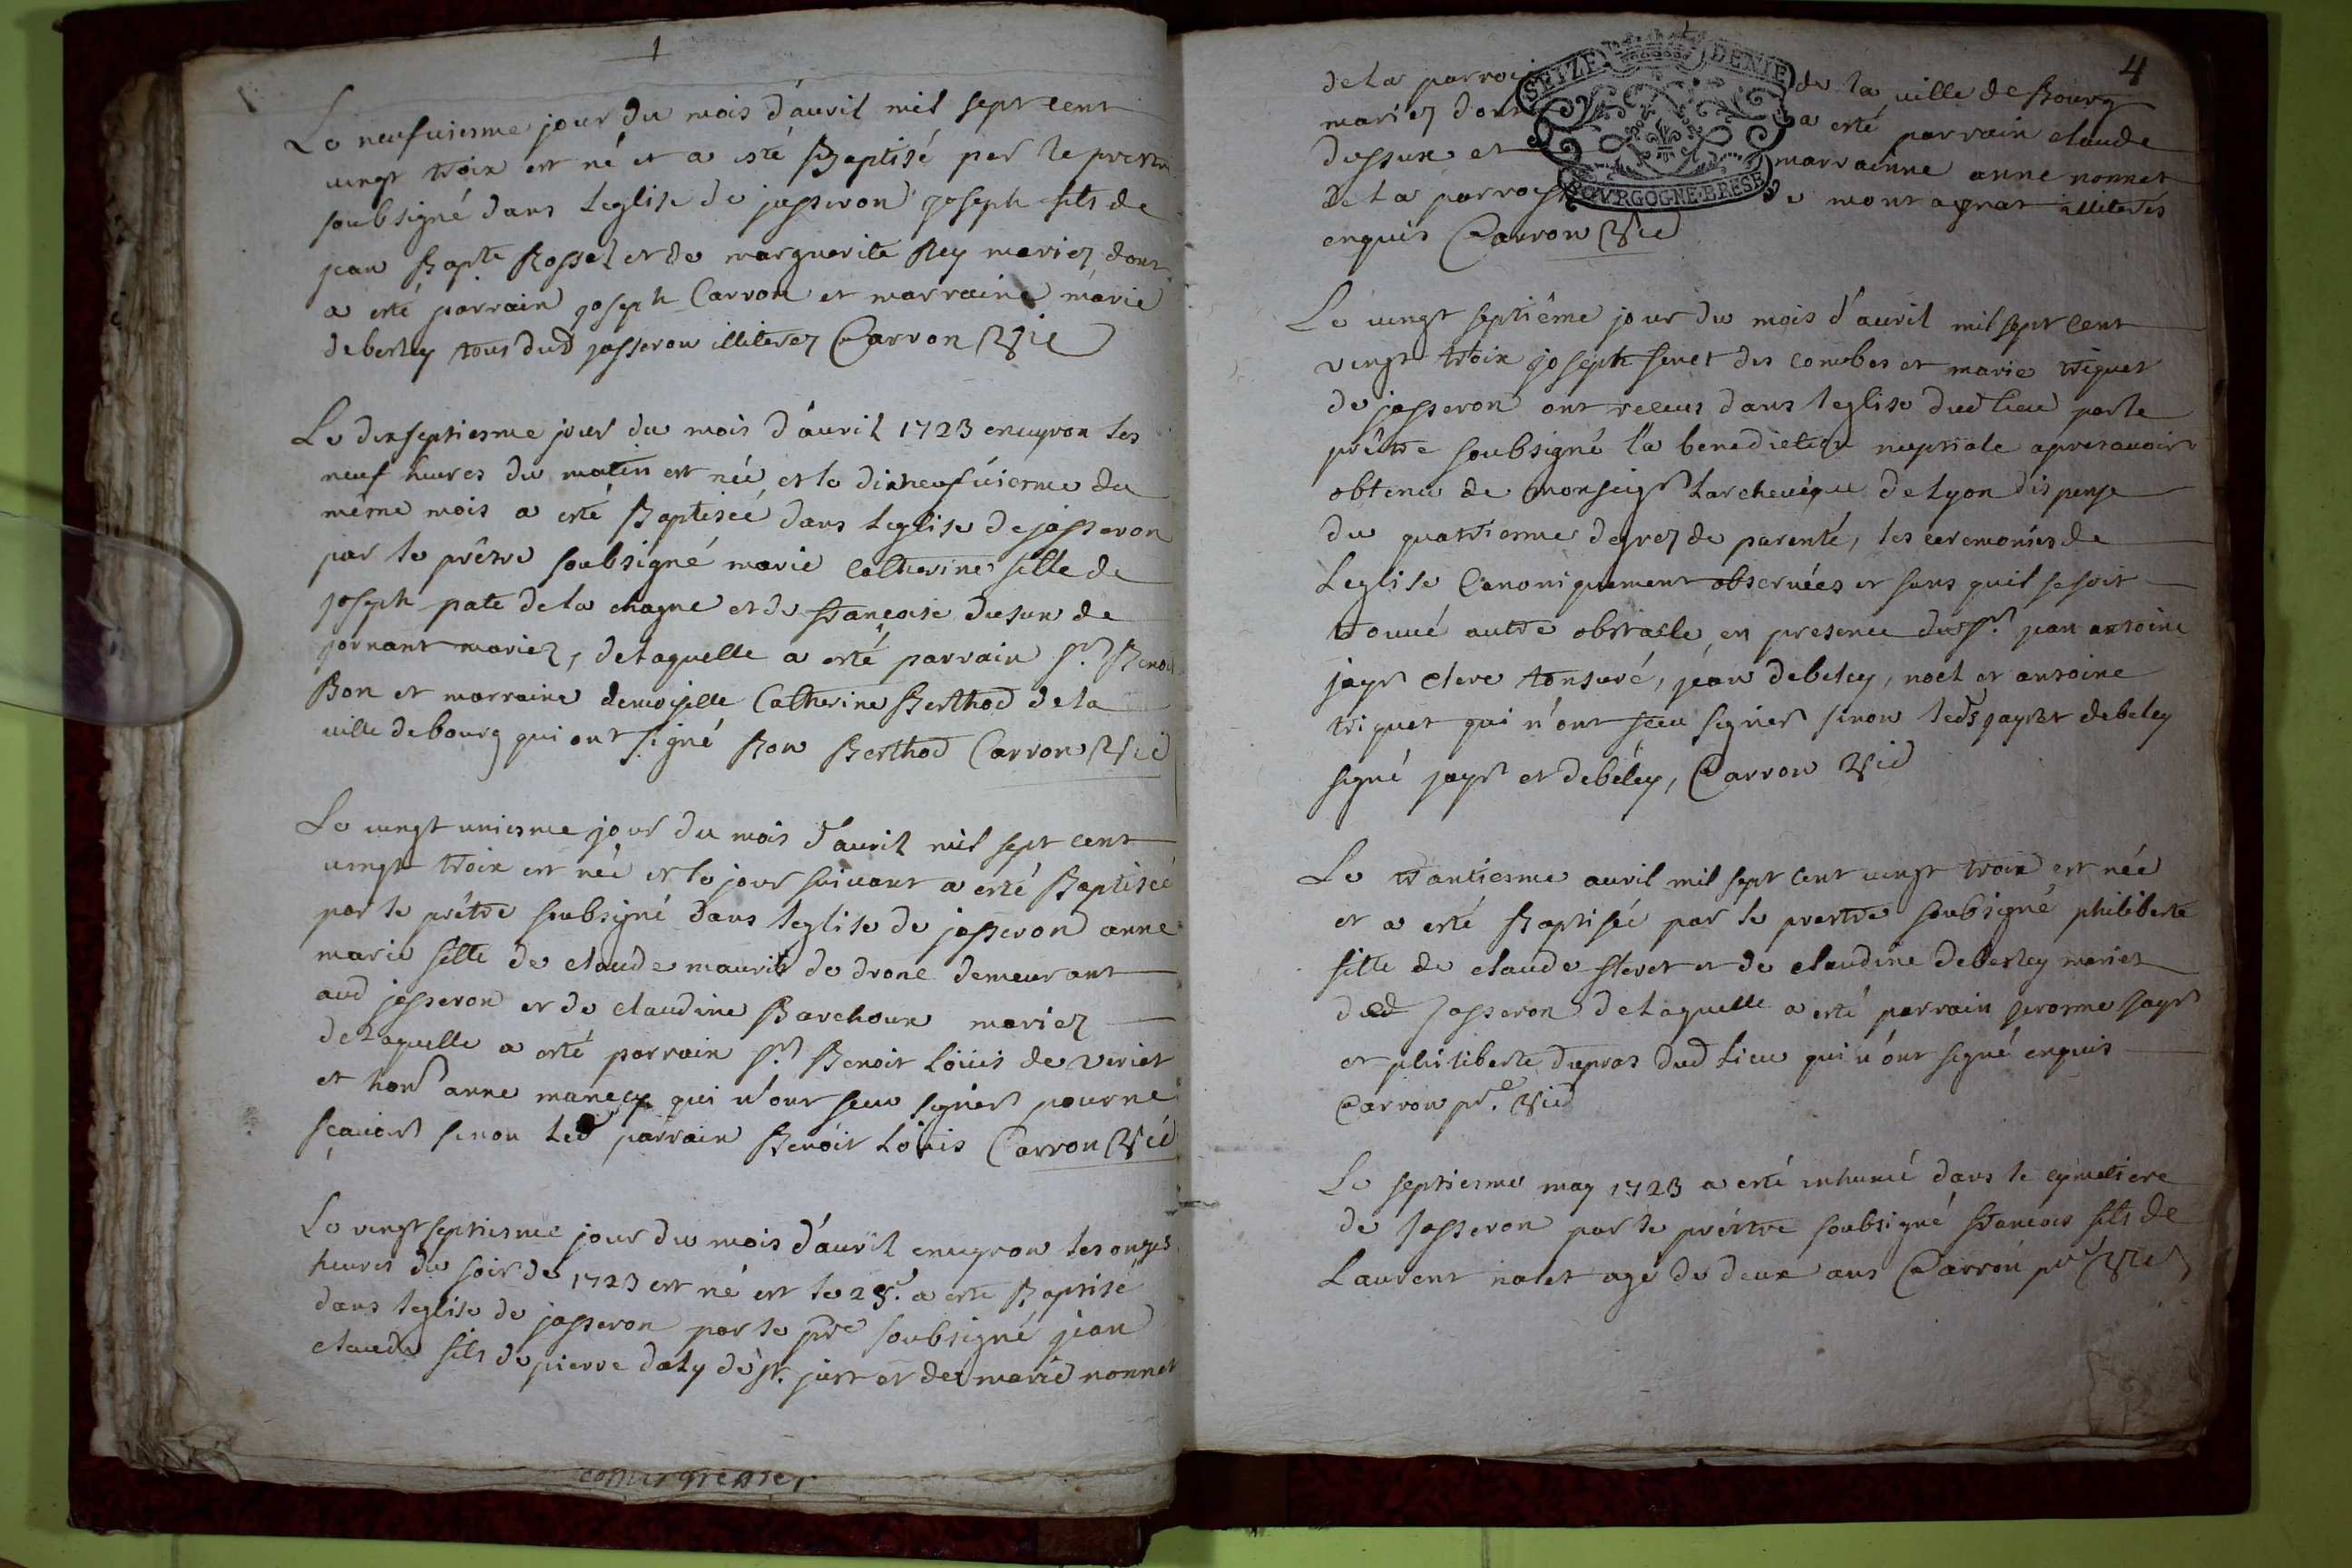 1
Le neufuiesme jour du mois d'auril mil sept cent
vingt troix est né et a esté Baptisé par le prestre
soubsigné dans leglise de jasseron joseph fils de
jean Bapte Rossel et de marguerite Rey mariez dont
a esté parrain joseph Carron et marraine marie
debeley tous dud jasseron illiterez Carron Vic
Le dixseptiesme jour du mois d'auril 1723 enuyron les
neuf heures du matin est née et le dixneufuiesme du
même mois a esté Baptisée dans leglise de jasseron
par le prêtre soubsigné marie Catherine fille de
joseph pate de la chagne et de francoise dusun de
jornant mariez, de laquelle a esté parrain sr. Benoit
Bon et marraine demoiselle Catherine Berthod de la
ville de bourg qui ont signé Bon Berthod Carron Vic
Le vingt uniesme jour du mois d'auril mil sept cent
vingt troix est née et le jour suiuant a esté Baptisée
par le prêtre soubsigné dans leglise de jasseron anne
marie fille de claude maurit de drone demeurant
aud jasseron et de claudine Barchoux mariez
de laquelle a esté parrain sr. Benoit Loüis de veriet
et honr anne manecy qui n'ont sceu signer pour ne
sçauoir sinon led parrain Benoit Loüis Carron Vic
Le vingt septiesme jour du mois d'auril enuyron les onzes
heures du soir de 1723 est né et le 28e. a esté Baptisé
dans leglise de jasseron par le pre soubsigné jean
claude fils de pierre daly de st. just et de marie nonnet
4
SEIZE DENIE
BOVRGOGNE·BRESE
de la parroi de la ville de Bourg
mariez dont a esté parrain claude
dessus et marrainne anne nonnet
de la parroisse de montagnat illiterés
enquis Carron Vic
Le vingt septiême jour du mois d'auril mil sept cent
vingt troix joseph feuet des combes et marie triquet
de jasseron ont recus dans leglise dud lieu par le
prêtre soubsigné la benediction nuptiale apres auoir
obtenu de Monseigr Larcheuêque de Lyon dispense
du quatriesme degrez de parenté, les ceremonies de
Leglise Canoniquement obseruées et sans quil se soit
trouué autre obstacle, en presence du sr. jean antoine
jayr clerc tonsuré, jean debeley, noel et antoine
triquet qui n'ont sceu signer sinon leds jayr et debeley
signé jayr et debeley, Carron Vic
Le trantiesme auril mil sept cent vingt troix est née
et a esté Baptisée par le prestre soubsigné philiberte
fille de claude feuet et de claudine debeley mariez
dud Jasseron de laquelle a esté parrain jerosme jayr
et philiberte dupras dud Lieu qui n'ont signé enquis
Carron pre. Vic
Le septiesme may 1723 a esté inhumé dans le cymetiere
de Jasseron par le prêstre soubsigné francois fils de
Laurent nalet agé de deux ans Carron pre Vic